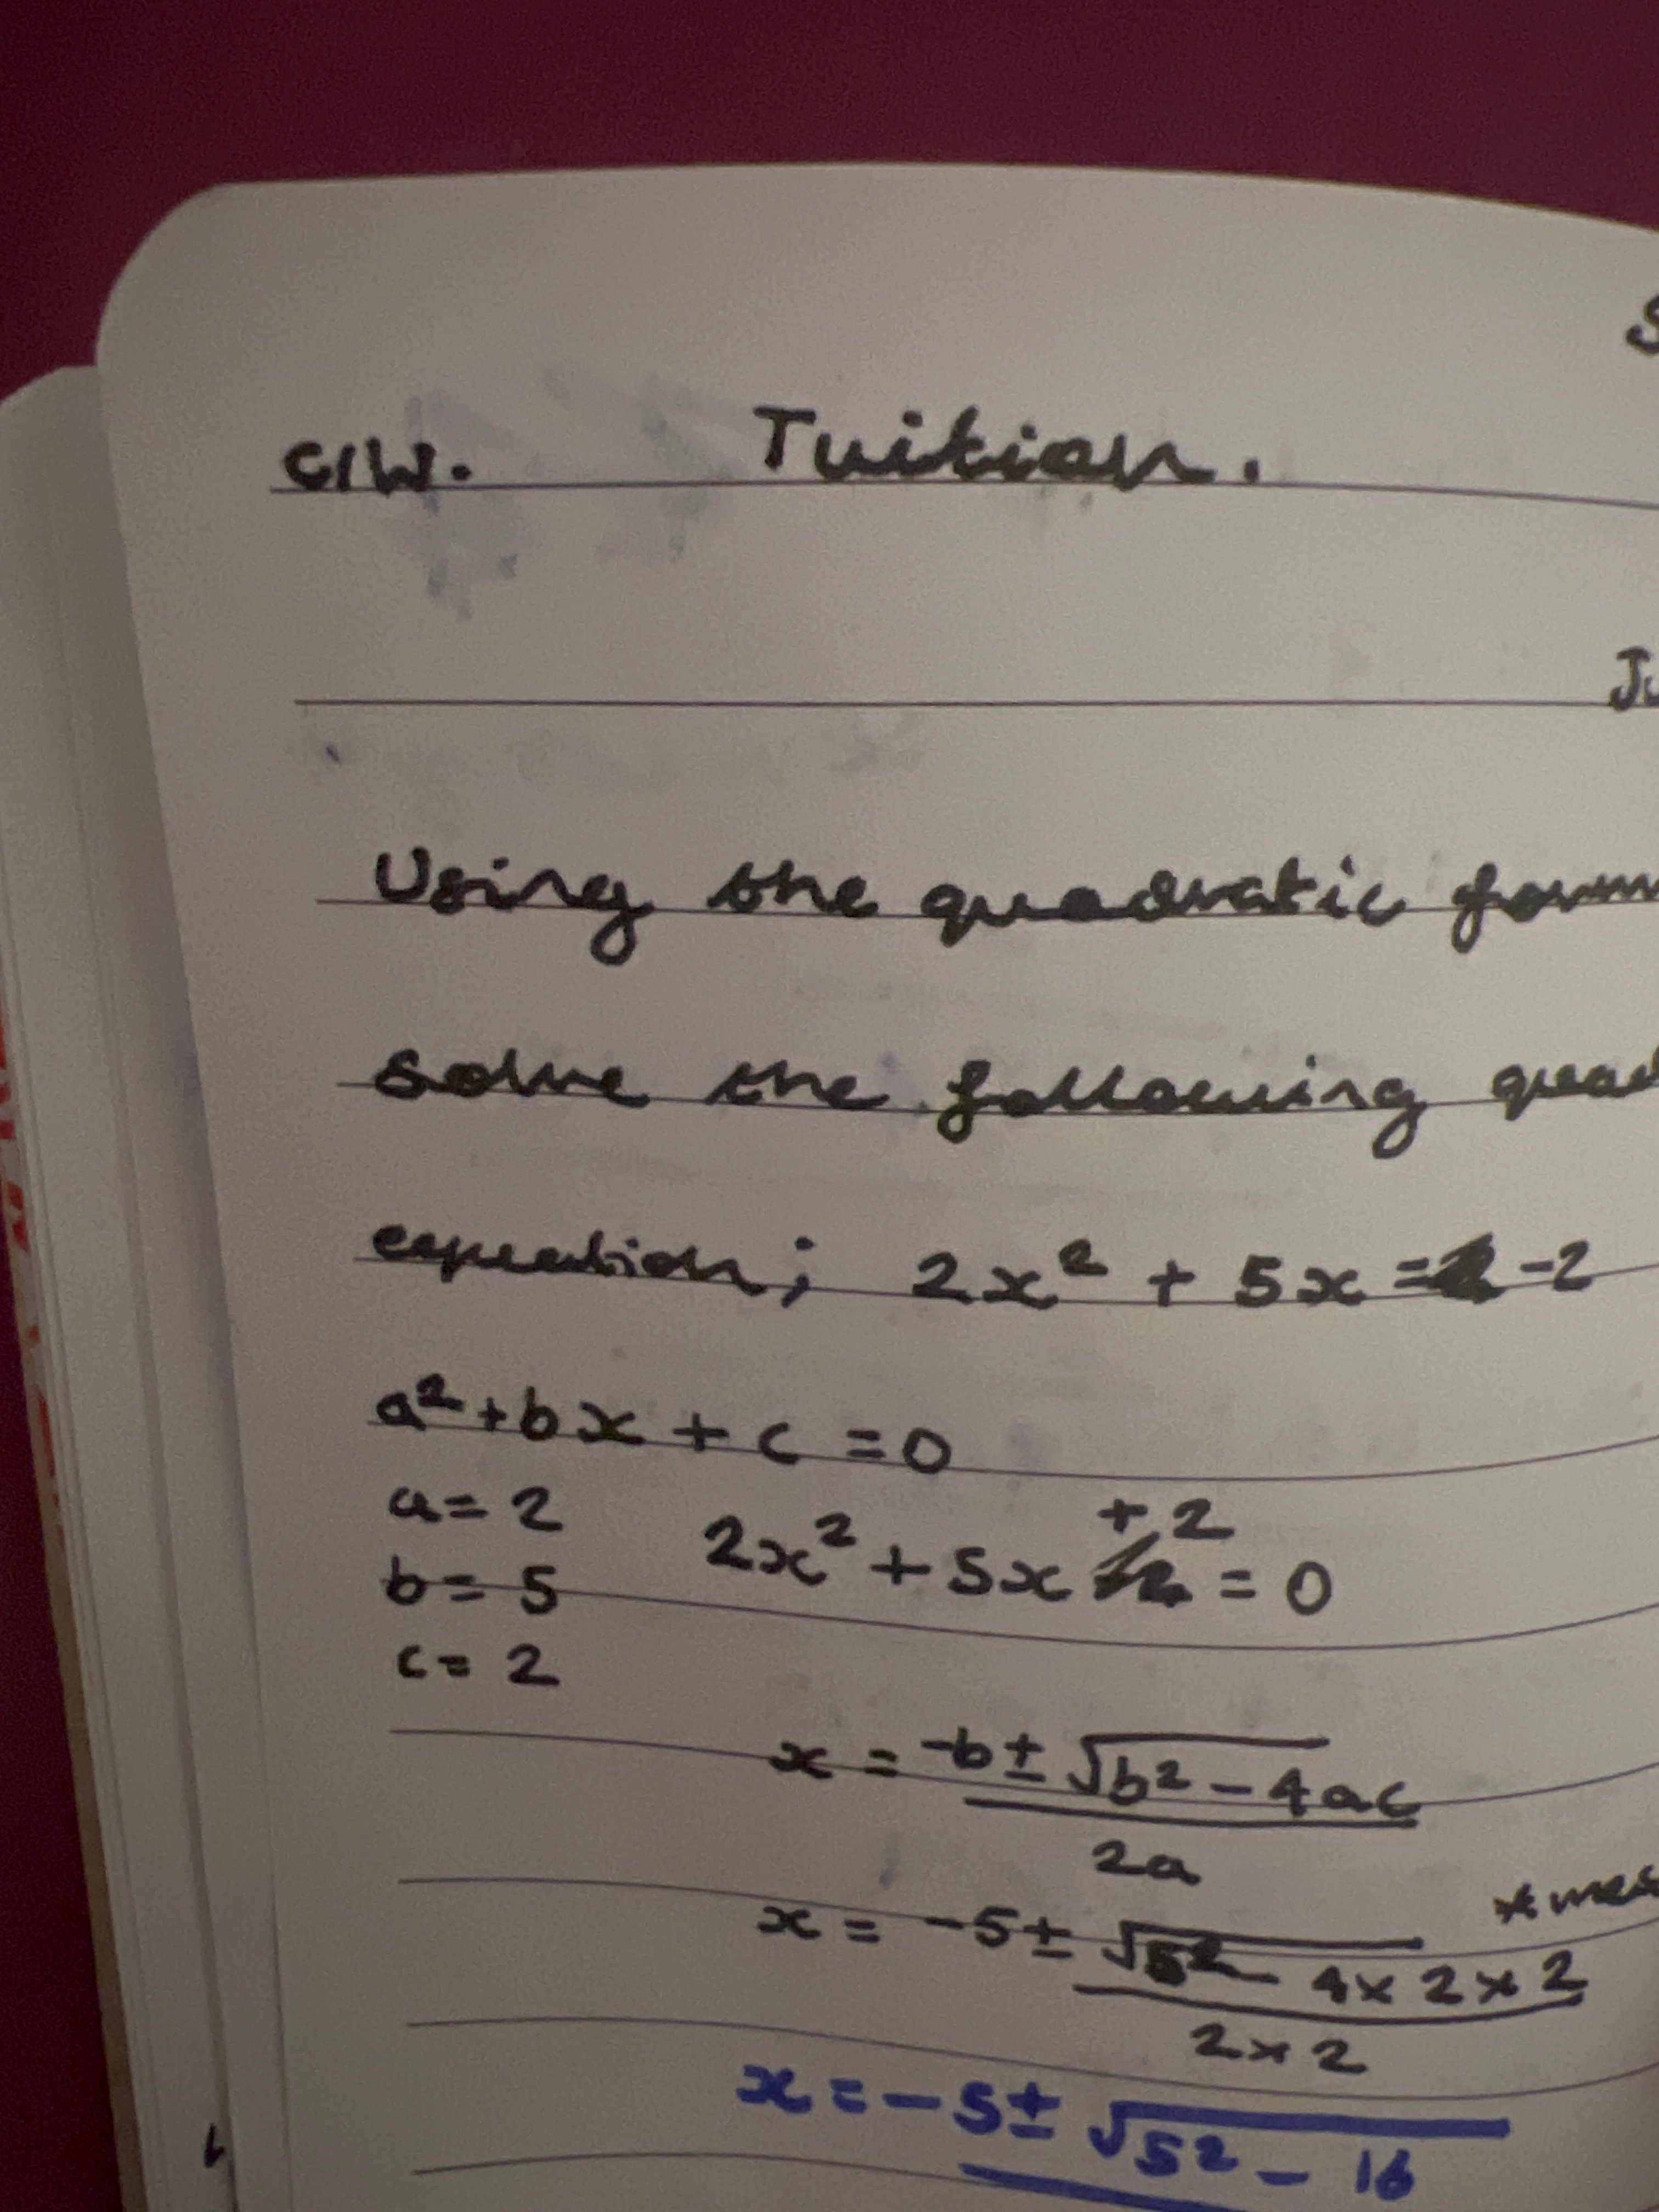 C/W. Tuition.
Using the quadratic form
solve the following quad
equation; 2x² + 5x = -2
a² + bx + c = 0
a = 2
2x² + 5x + 2 = 0
b = 5
c = 2
x = -b ± √b² - 4ac
2a
x = -5 ± √5² - 4 x 2 x 2
2 x 2
x = -5 ± √5² - 16